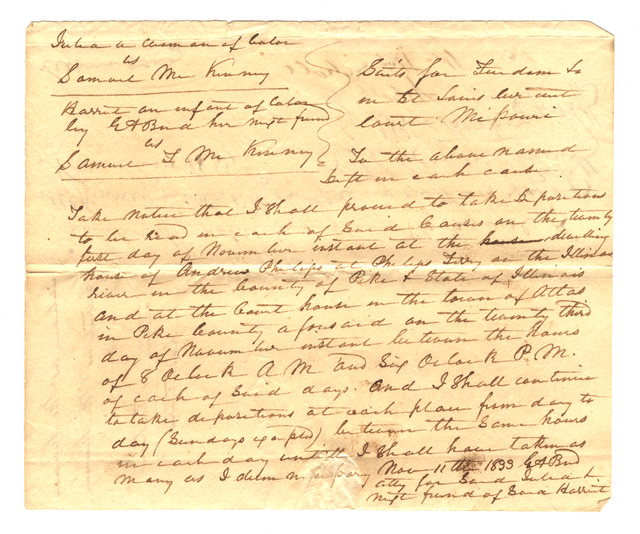 Julia a woman of Color
vs
Samuel McKinney
Harriet an infant of Color
by G A Bird her next friend
vs
Samuel T McKinney
Suits for Freedom
in St Louis Circuit
Court Missouri
To the above named
Deft in each cause
Take notice that I shall proceed to take Depositions
to be read in each of said Causes on the twenty
first day of November instant at the house dwelling
house of Andrew Philips at Philips Ferry on the Illinois
River in the County of Pike & State of Illinois
and at the Court house in the town of Atlas
in Pike County aforesaid on the twenty third
day of November instant between the hours
of 8 Oclock A M and Six Oclock P. M.
of each of said days. And I shall continue
to take depositions at each place from day to
day (Sundays excepted) between the same hours
in each day untill I shall have taken as
many as I deem necessary Nov 11th 1833 G A Bird
atty for said Julia &
next friend of said Harriet